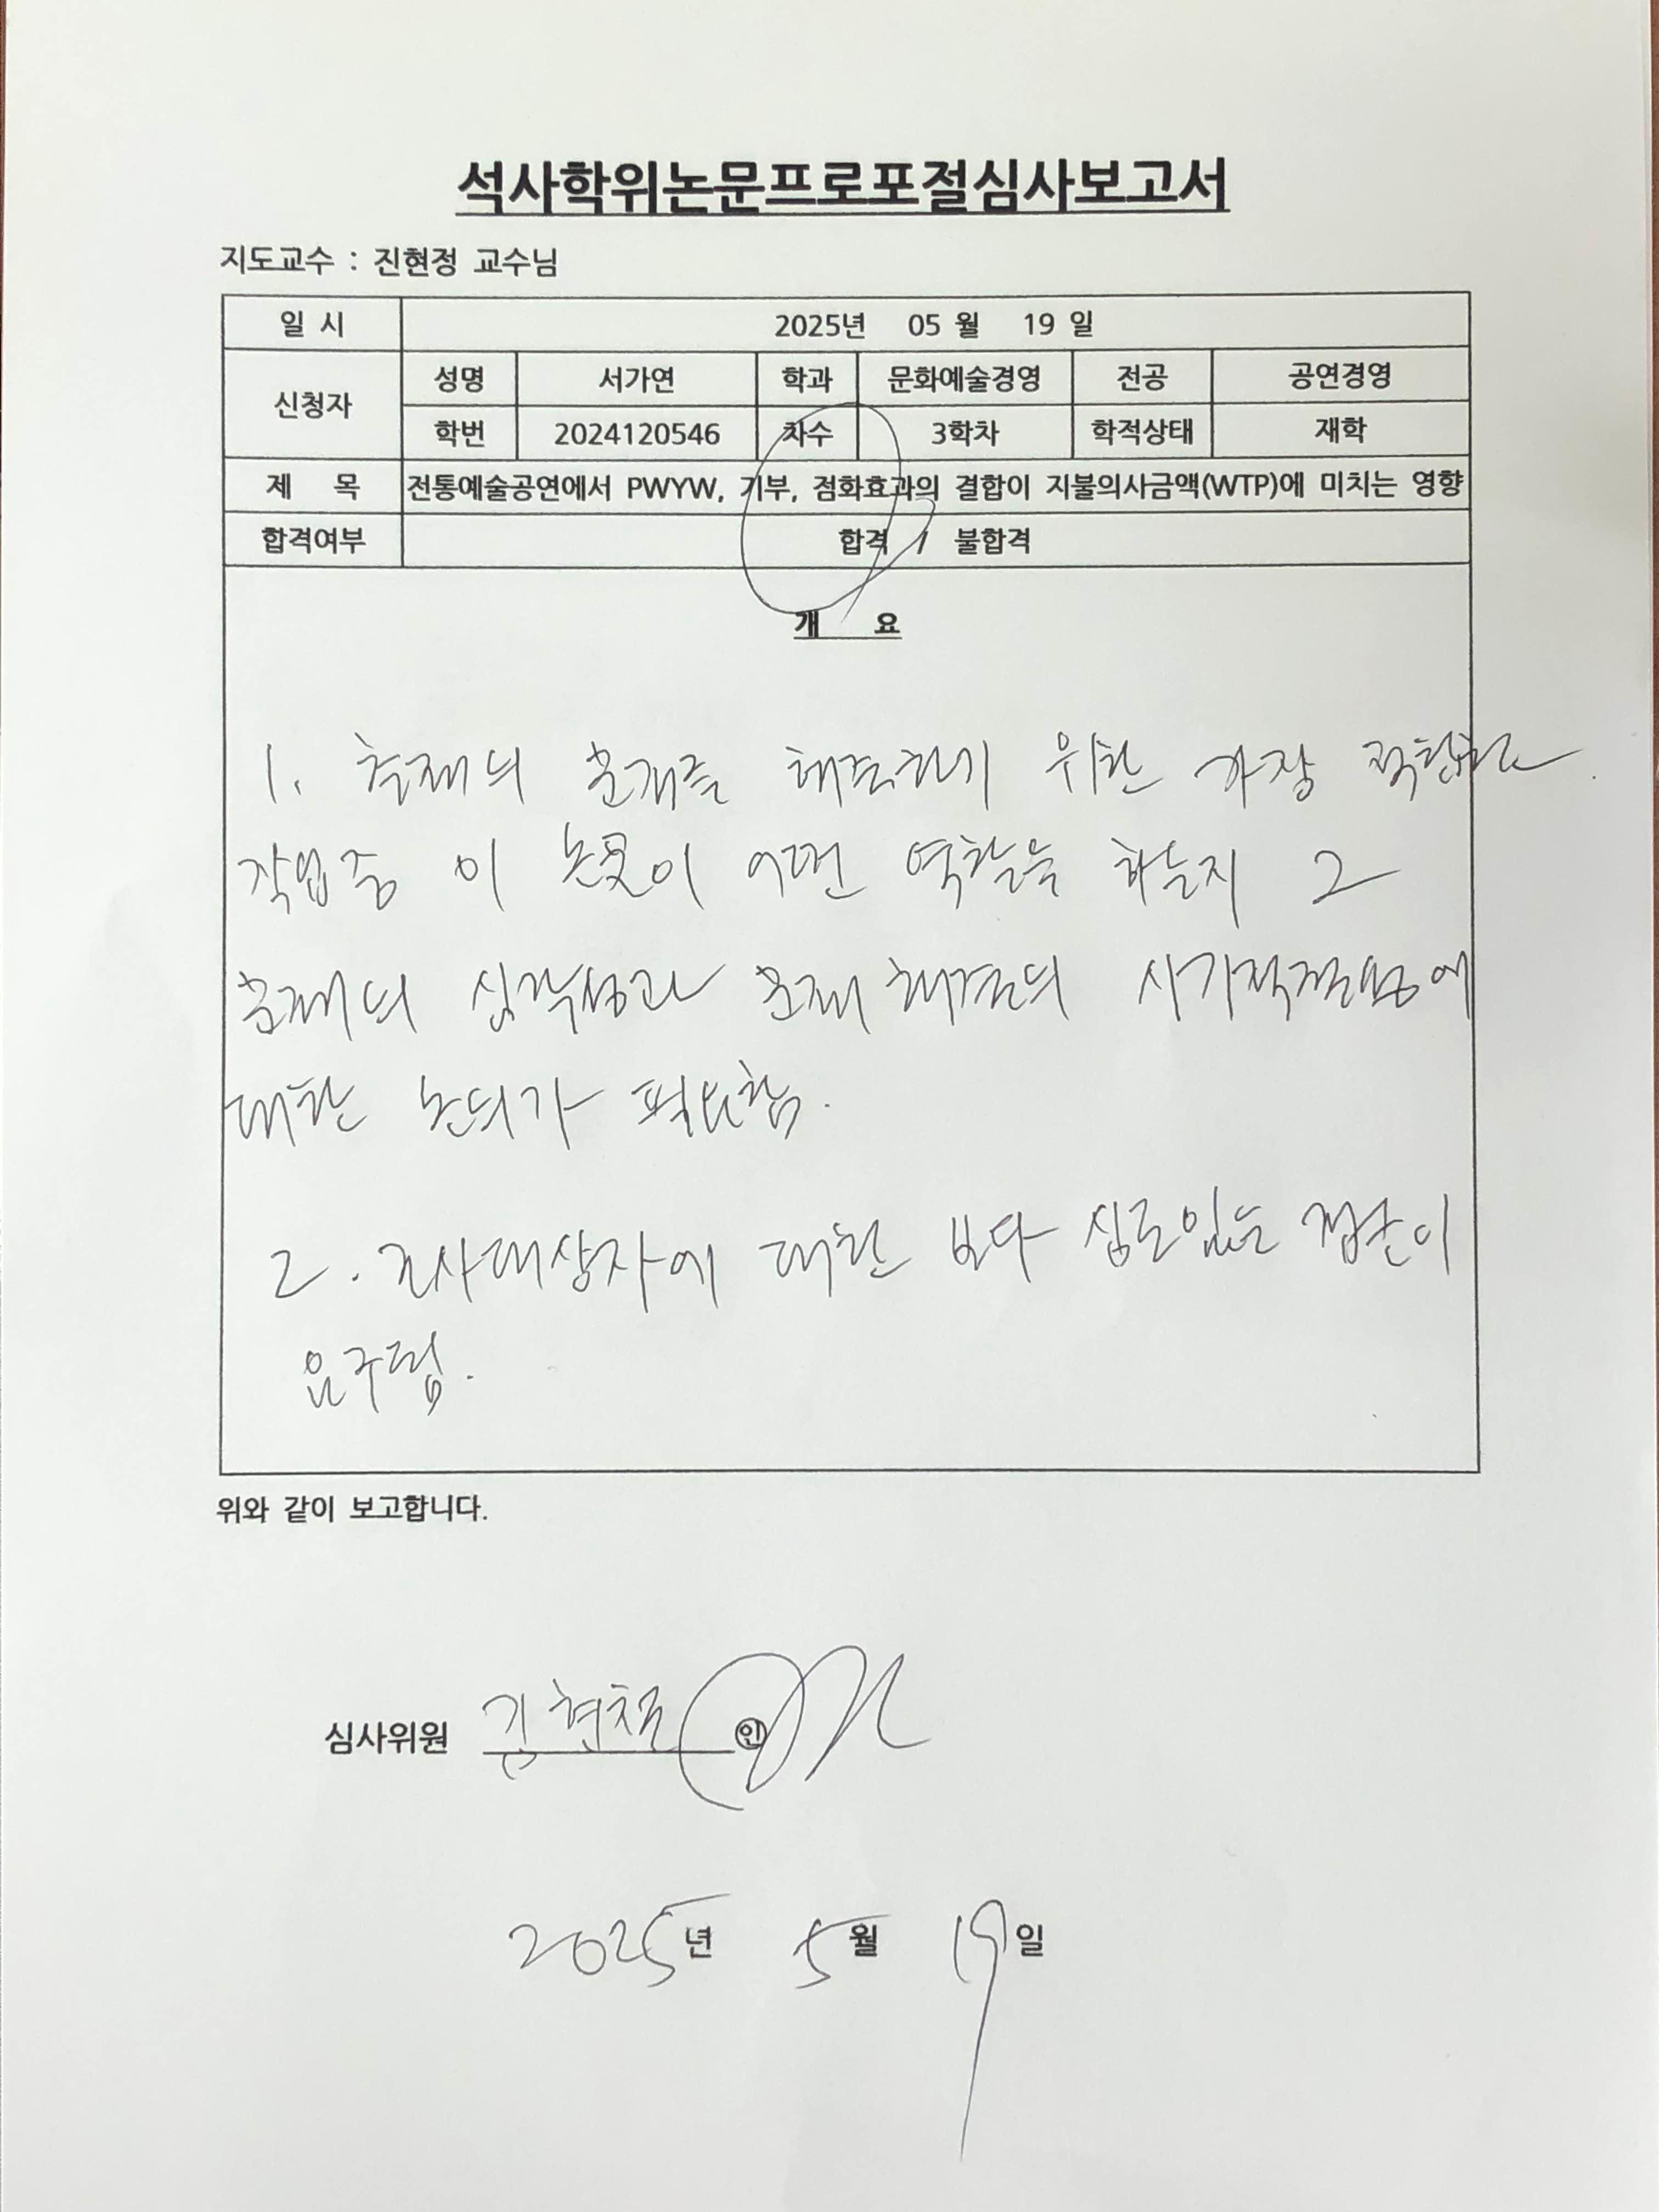 석사학위논문프로포절심사보고서
지도교수 : 진현정 교수님
일 시 2025년 05 월 19 일
신청자 성명 서가연 학과 문화예술경영 전공 공연경영
학번 2024120546 차수 3학차 학적상태 재학
제 목 전통예술공연에서 PWYW, 기부, 점화효과의 결합이 지불의사금액(WTP)에 미치는 영향
합격여부 합격 / 불합격
개 요
1. 문제를 해결하기 위한 가장 적합한
작업중 이 논문이 어떤 역할을 하는지 그
문제의 심각성과 문제해결의 시기적절성에
대한 논의가 필요함.
2. 조사대상자에 대한 보다 심도있는 접근이
요구됨.
위와 같이 보고합니다.
심사위원 인
2025년 5월 19일